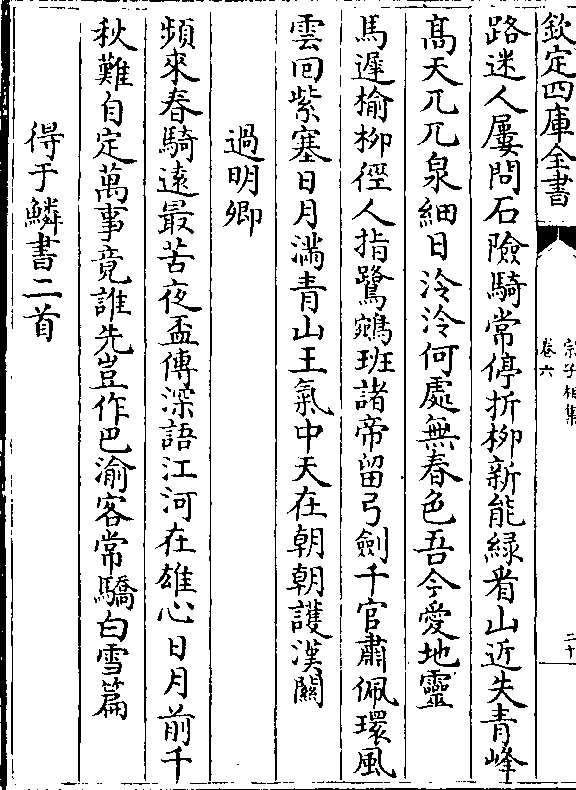 欽定四庫全書
宗子相集
卷六
二十
路迷人屢問石險騎常停折柳新能緑看山近失青峰
髙天兀兀泉細日泠泠何處無春色吾今愛地靈
馬遲榆柳徑人指鷺鵷班諸帝留弓劍千官肅佩環風
雲回紫塞日月滿青山王氣中天在朝朝護漢關
過明卿
頻來春騎遠最苦夜盃傳深語江河在雄心日月前千
秋難自定萬事竟誰先豈作巴渝客常驕白雪篇
得于鱗書二首